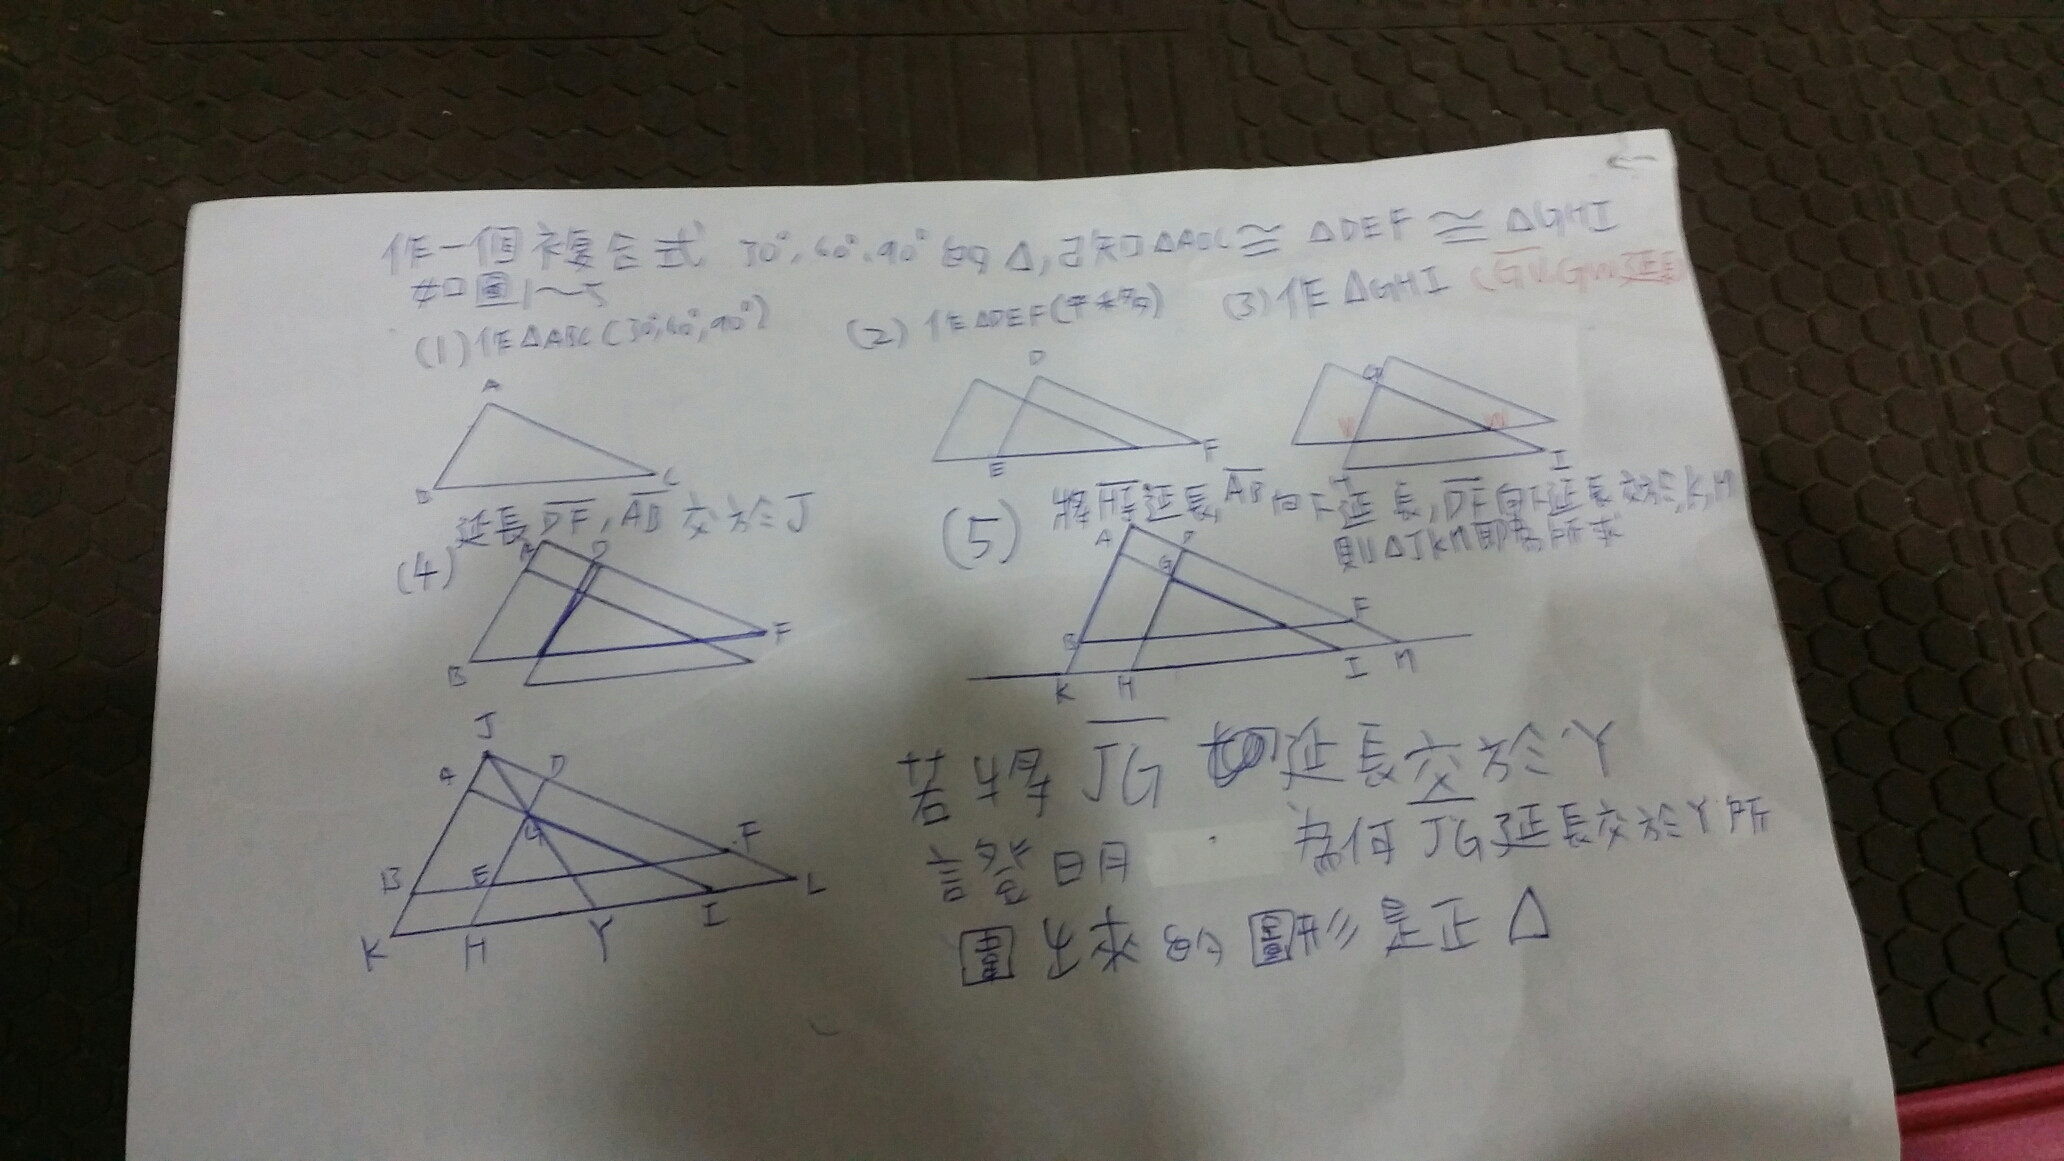 作一個複合式 30°,60°,90° 的△,已知△ABC≅ △DEF ≅ △GHI
如圖1~5
(1)作△ABC(30°,60°,90°)
(2)作△DEF(平移的)
(3)作△GHI (GV,GW延長)
A
B
C
D
E
F
G
V
W
H
I
延長DF,AB交於J
(4)
A
D
B
F
(5)
將HI延長,AB向下延長,DF向下延長交於K,M
則△JKM即為所求
A
D
G
B
F
K
H
I
M
J
A
D
G
B
E
F
K
H
Y
I
L
若將JG 延長交於Y
證明 為何JG延長交於Y所
圍出來的圖形是正△